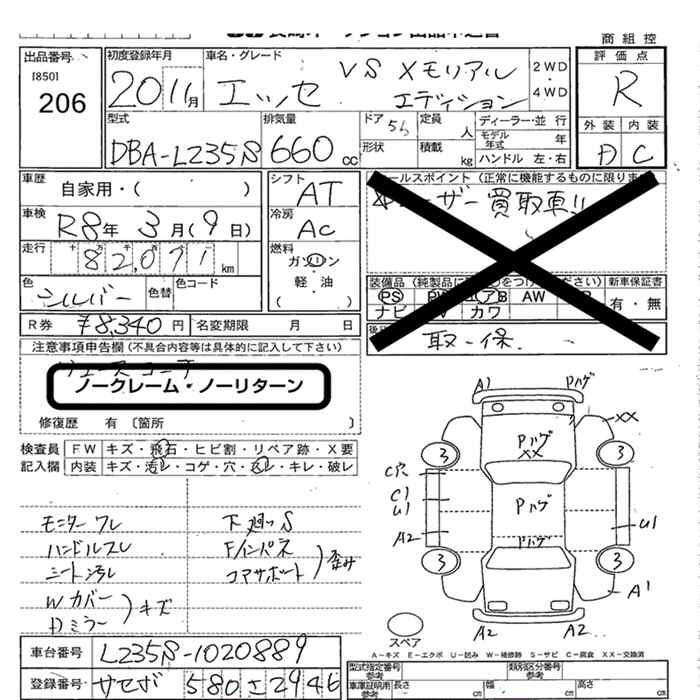 商組控
出品番号
[850]
206
初度登録年月
2011月
車名・グレード
エッセ
VS メモリアル
エディション
2WD
・
4WD
評価点
R
外装 内装
D C
型式
DBA-L235S
排気量
660 cc
ドア 5
形状
定員 人
積載 kg
ディーラー・並行
モデル年式 年
ハンドル 左・右
車歴
自家用・( )
シフト
AT
セールスポイント (正常に機能するものに限ります)
ユーザー買取車!!
車検
R8年 3月(9日)
冷房
AC
走行
82,071 km
燃料
ガソリン
軽・油
( )
色
シルバー
色替
色コード
装備品
PS
AW
ナビ
カワ
新車保証書
有・無
取・保
R券 ¥8,340円
名変期限 月 日
注意事項申告欄 (不具合内容等は具体的に記入して下さい)
ノークレーム・ノーリターン
修復歴 有 〔箇所 〕
検査員
記入欄
FW キズ・飛石・ヒビ割・リペア跡・X要
内装 キズ・汚レ・コゲ・穴・スレ・キレ・破レ
モニターワレ
ハンドルスレ
シート汚れ
Wカバー
Dミラー
キズ
下廻りS
F/インパネ
コアサポート
歪み
A1
Pハゲ
XX
Pハゲ
XX
3
3
C穴
C1
U1
A2
Pハゲ
U1
Pハゲ
3
3
A1
A2
A2
スペア
A-キズ E-エクボ U-凹み W-補修跡 S-サビ C-腐食 XX-交換済
車台番号 L235S-1020889
型式指定番号
参考
類別区分番号
参考
登録番号 サセボ 580 さ 2946
車庫証明用
参考
長さ cm
幅 cm
高さ cm